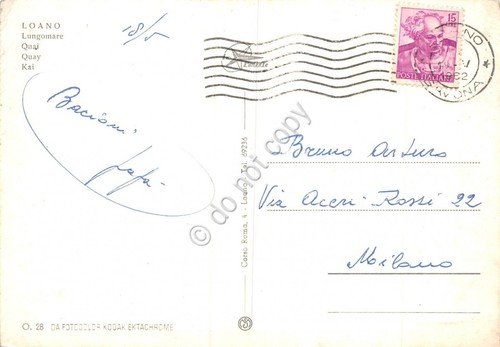 LOANO
Lungomare
Quai
Quay
Kai
18/5
Bacioni
Papà
15
POSTE ITALIANE
LOANO
SAVONA
Bruno Arturo
Via Acerri-Rossi 22
Milano
Corso Roma, 4 - Loano - Tel. 69236
O. 28 DA FOTOCOLOR KODAK EKTACHROME
© do not copy